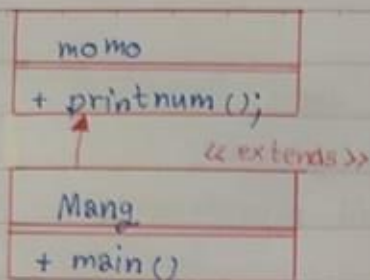 momo
+ printnum ();
<<extends>>
Mang
+ main ()